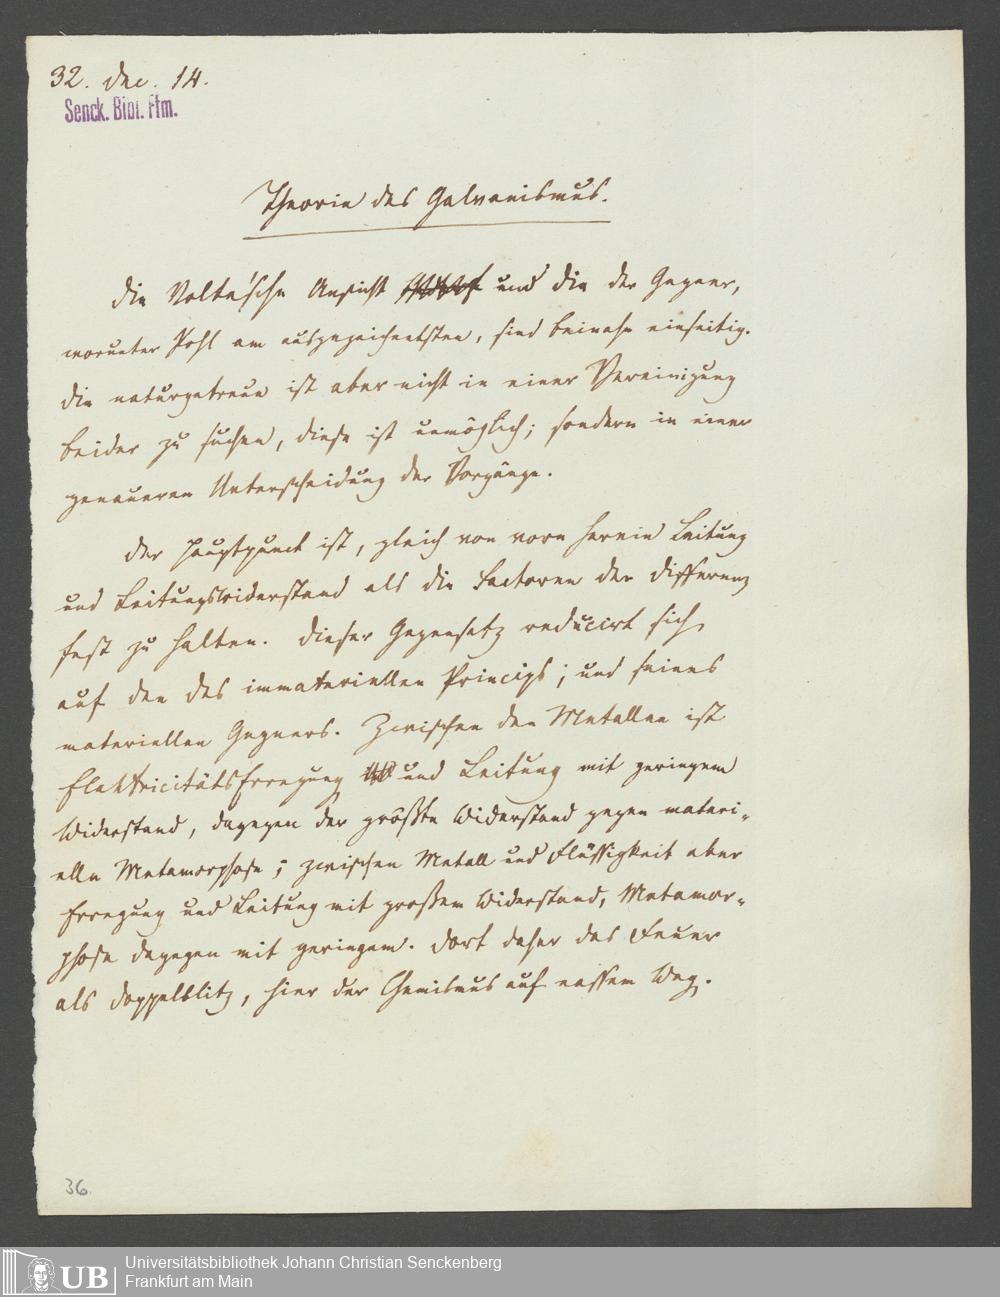 32. Dec. 14.
Senck. Bibl. Ffm.
Theorie des Galvanismus.
Die Volta'sche Ansicht und die der Gegner,
worunter Pohl am ausgezeichnetsten, sind beinahe einseitig.
Die naturgetreue ist aber nicht in einer Vereinigung
beider zu suchen, diese ist unmöglich; sondern in einer
genaueren Unterscheidung der Vorgänge.
Der Hauptpunct ist, gleich von vorn herein Leitung
und Leitungswiderstand als die Factoren der Differenz
fest zu halten. Dieser Gegensatz reducirt sich
auf den des immateriellen Princips; und seines
materiellen Gegners. Zwischen den Metallen ist
Elektricitätserregung und Leitung mit geringem
Widerstand, dagegen der größte Widerstand gegen materi-
elle Metamorphose; zwischen Metall und Flüssigkeit aber
Erregung und Leitung mit großem Widerstand, Metamor-
phose dagegen mit geringem. Dort daher das Feuer
als Doppelblitz, hier der Chemismus auf nassem Weg.
36.
UB
Universitätsbibliothek Johann Christian Senckenberg
Frankfurt am Main